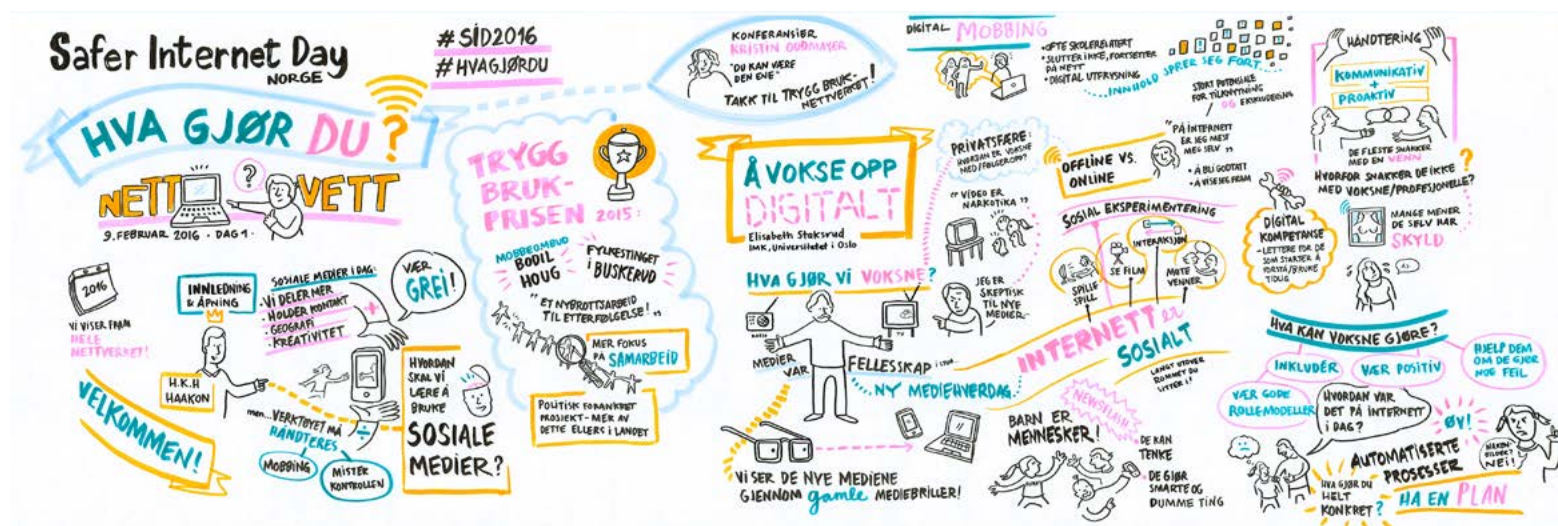 Safer Internet Day
NORGE
#SID2016
#HVAGJØRDU
HVA GJØR DU?
NETT
VETT
?
9. FEBRUAR 2016 · DAG 1 ·
2016
VI VISER FRAM
HELE
NETTVERKET!
VELKOMMEN!
INNLEDNING
& ÅPNING
H.K.H
HAAKON
SOSIALE MEDIER I DAG:
· VI DELER MER
· HOLDER KONTAKT
· GEOGRAFI
· KREATIVITET
+
VÆR
GREI!
men... VERKTØYET MÅ
HÅNDTERES
÷
MOBBING
MISTER
KONTROLLEN
HVORDAN
SKAL VI
LÆRE Å
BRUKE
SOSIALE
MEDIER?
TRYGG
BRUK-
PRISEN 2015:
MOBBEOMBUD
BODIL
HOUG
FYLKESTINGET
I BUSKERUD
"ET NYBROTTSARBEID
TIL ETTERFØLGELSE!"
MER FOKUS
PÅ SAMARBEID
POLITISK FORANKRET
PROSJEKT - MER AV
DETTE ELLERS I LANDET
KONFERANSIER
KRISTIN OUDMAYER
"DU KAN VÆRE
DEN ENE"
TAKK TIL TRYGG BRUK-
NETTVERKET!
Å VOKSE OPP
DIGITALT
Elisabeth Staksrud
IMK, Universitetet i Oslo
HVA GJØR VI VOKSNE?
RADIO
TV
MEDIER
VAR
FELLESSKAP i stua...
NY MEDIEHVERDAG
VI SER DE NYE MEDIENE
GJENNOM gamle MEDIEBRILLER!
DIGITAL MOBBING
· OFTE SKOLERELATERT
· SLUTTER IKKE, FORTSETTER
PÅ NETT
· DIGITAL UTFRYSNING
INNHOLD SPRER SEG FORT...
PRIVATSFÆRE:
HVORDAN ER VOKSNE
MED/FØLGER OPP?
"VIDEO ER
NARKOTIKA"
JEG ER
SKEPTISK
TIL NYE
MEDIER...
OFFLINE VS.
ONLINE
STORT POTENSIALE
FOR TILKNYTNING
OG EKSKLUDERING
"PÅ INTERNETT
ER JEG MEST
MEG SELV"
· Å BLI GODTATT
· Å VISE SEG FRAM
SOSIAL EKSPERIMENTERING
SPILLE
SPILL
SE FILM
INTERAKSJON
MØTE
VENNER
INTERNETT er
SOSIALT
LANGT UTOVER
ROMMET DU
SITTER I!
NEWSFLASH
BARN ER
MENNESKER!
DE KAN
TENKE
· DE GJØR
SMARTE OG
DUMME TING
DIGITAL
KOMPETANSE
- LETTERE FOR DE
SOM STARTER Å
FORSTÅ/BRUKE
TIDLIG
HÅNDTERING
KOMMUNIKATIV
+
PROAKTIV
DE FLESTE SNAKKER
MED EN VENN
HVORFOR SNAKKER DE IKKE
MED VOKSNE/PROFESJONELLE?
MANGE MENER
DE SELV HAR
SKYLD
HVA KAN VOKSNE GJØRE?
INKLUDER
VÆR POSITIV
HJELP DEM
OM DE GJØR
NOE FEIL
VÆR GODE
ROLLEMODELLER
HVORDAN VAR
DET PÅ INTERNETT
I DAG?
ØV!
NAKEN-
BILDER?
NEI!
AUTOMATISERTE
PROSESSER
HVA GJØR DU
HELT
KONKRET?
HA EN PLAN